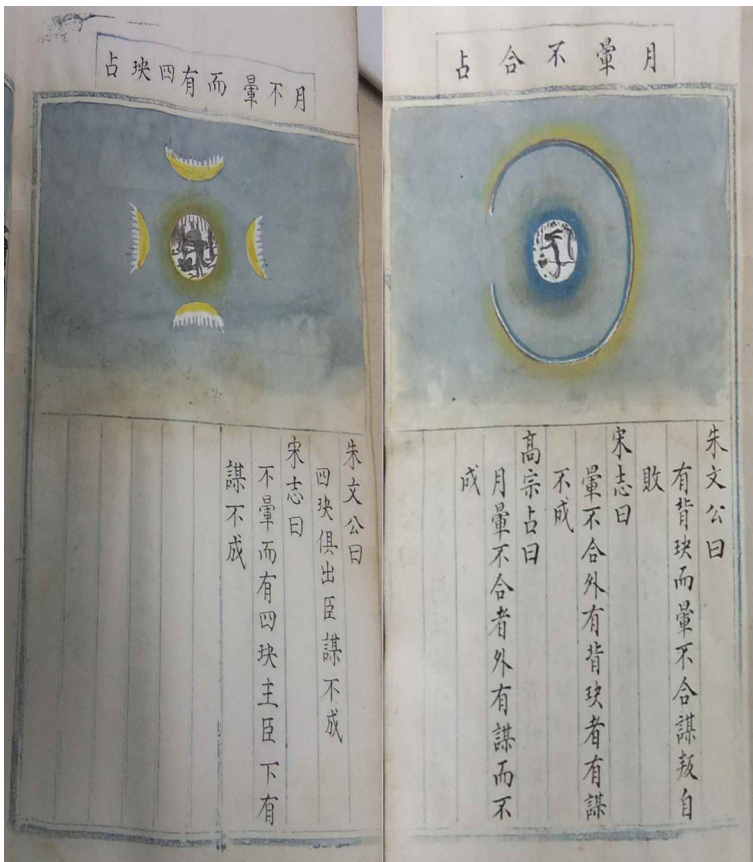 月暈不合占
朱文公曰
有背玦而暈不合謀叛自
敗
宋志曰
暈不合外有背玦者有謀
不成
髙宗占曰
月暈不合者外有謀而不
成
月不暈而有四玦占
朱文公曰
四玦俱出臣謀不成
宋志曰
不暈而有四玦主臣下有
謀不成